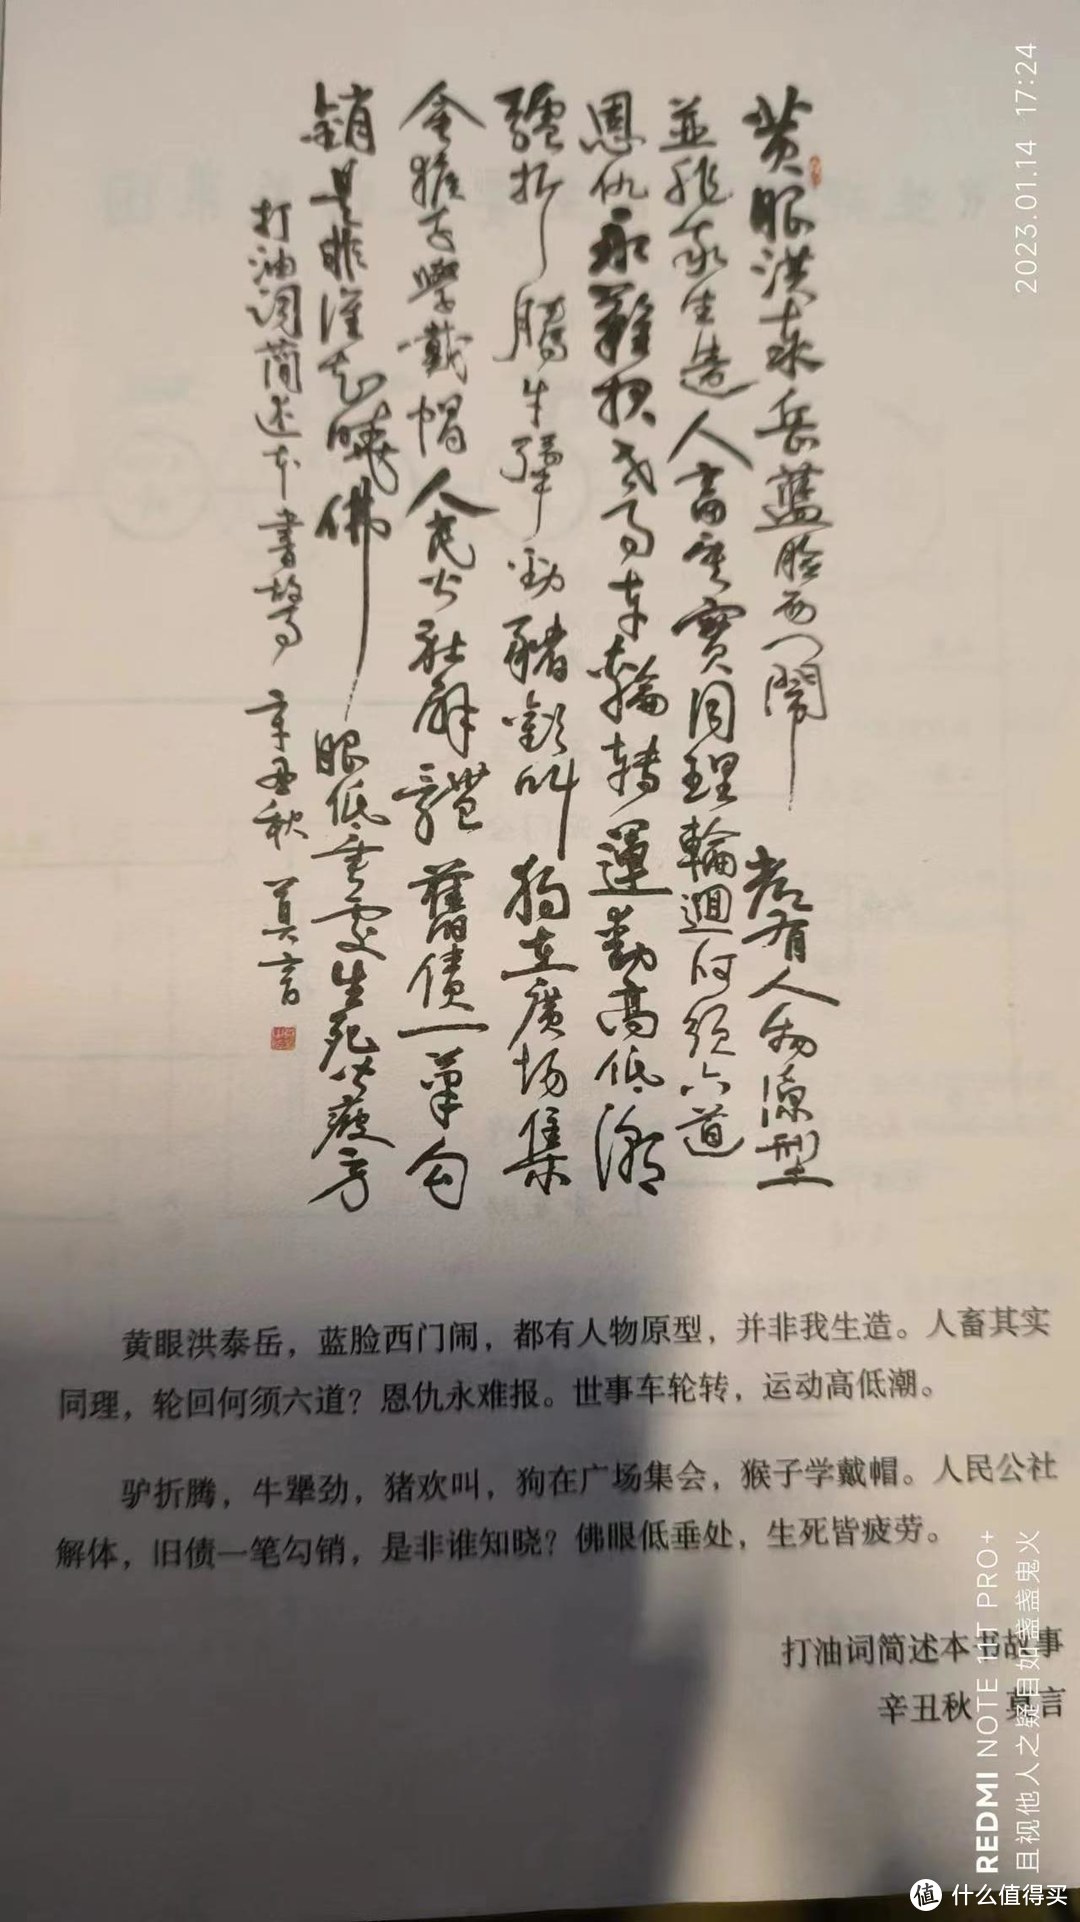 黄眼洪泰岳藍脸西门鬧都有人物源型
並非我生造人畜其實同理輪迴何须六道
恩仇永難报世事车輪转運動高低潮
驢折騰牛犟劲豬歡叫狗在廣场集
會猴子學戴帽人民公社解體舊债一筆勾
銷是非谁知曉佛眼低垂处生死皆疲劳
打油词简述本書故事 辛丑秋 莫言
黄眼洪泰岳，蓝脸西门闹，都有人物原型，并非我生造。人畜其实
同理，轮回何须六道？恩仇永难报。世事车轮转，运动高低潮。
驴折腾，牛犟劲，猪欢叫，狗在广场集会，猴子学戴帽。人民公社
解体，旧债一笔勾销，是非谁知晓？佛眼低垂处，生死皆疲劳。
打油词简述本书故事
辛丑秋 莫言
2023.01.14 17:24
REDMI NOTE 11T PRO+
且视他人之疑目如盏盏鬼火
值 什么值得买